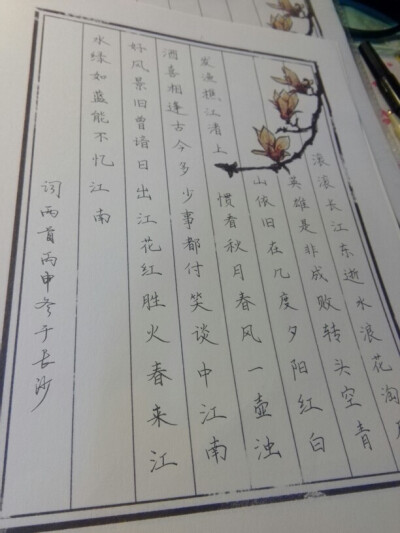 滚滚长江东逝水浪花淘
英雄是非成败转头空青
山依旧在几度夕阳红白
发渔樵江渚上惯看秋月春风一壶浊
酒喜相逢古今多少事都付笑谈中江南
好风景旧曾谙日出江花红胜火春来江
水绿如蓝能不忆江南
词两首丙申冬于长沙